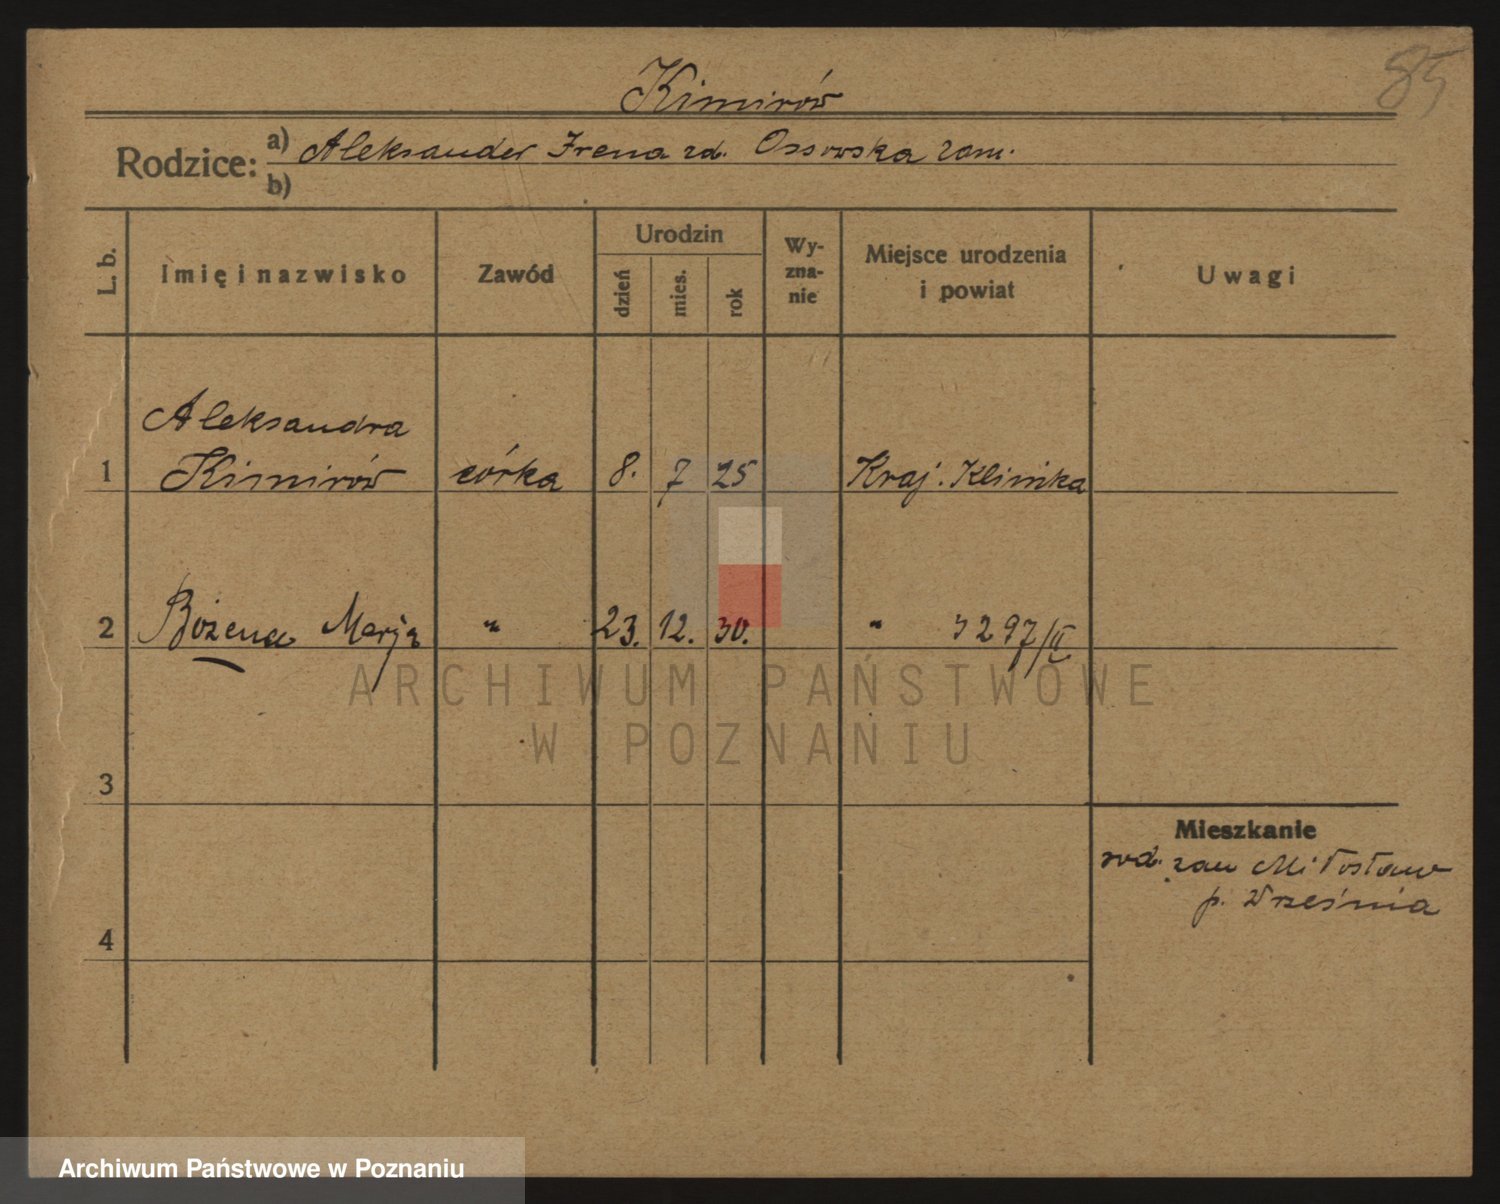 85
Kimirów
Rodzice: a) Aleksander Irena zd. Ossowska zam.
b)
L. b. Imię i nazwisko Zawód Urodzin dzień mies. rok Wy-zna-nie Miejsce urodzenia i powiat Uwagi
Aleksandra
1 Kimirów córka 8. 7 25 Kraj. Klinika
2 Bożena Marja " 23. 12. 30. " 3297/II
ARCHIWUM PAŃSTWOWE
W POZNANIU
3
Mieszkanie
rod. zam Miłosław
p. Września
4
Archiwum Państwowe w Poznaniu